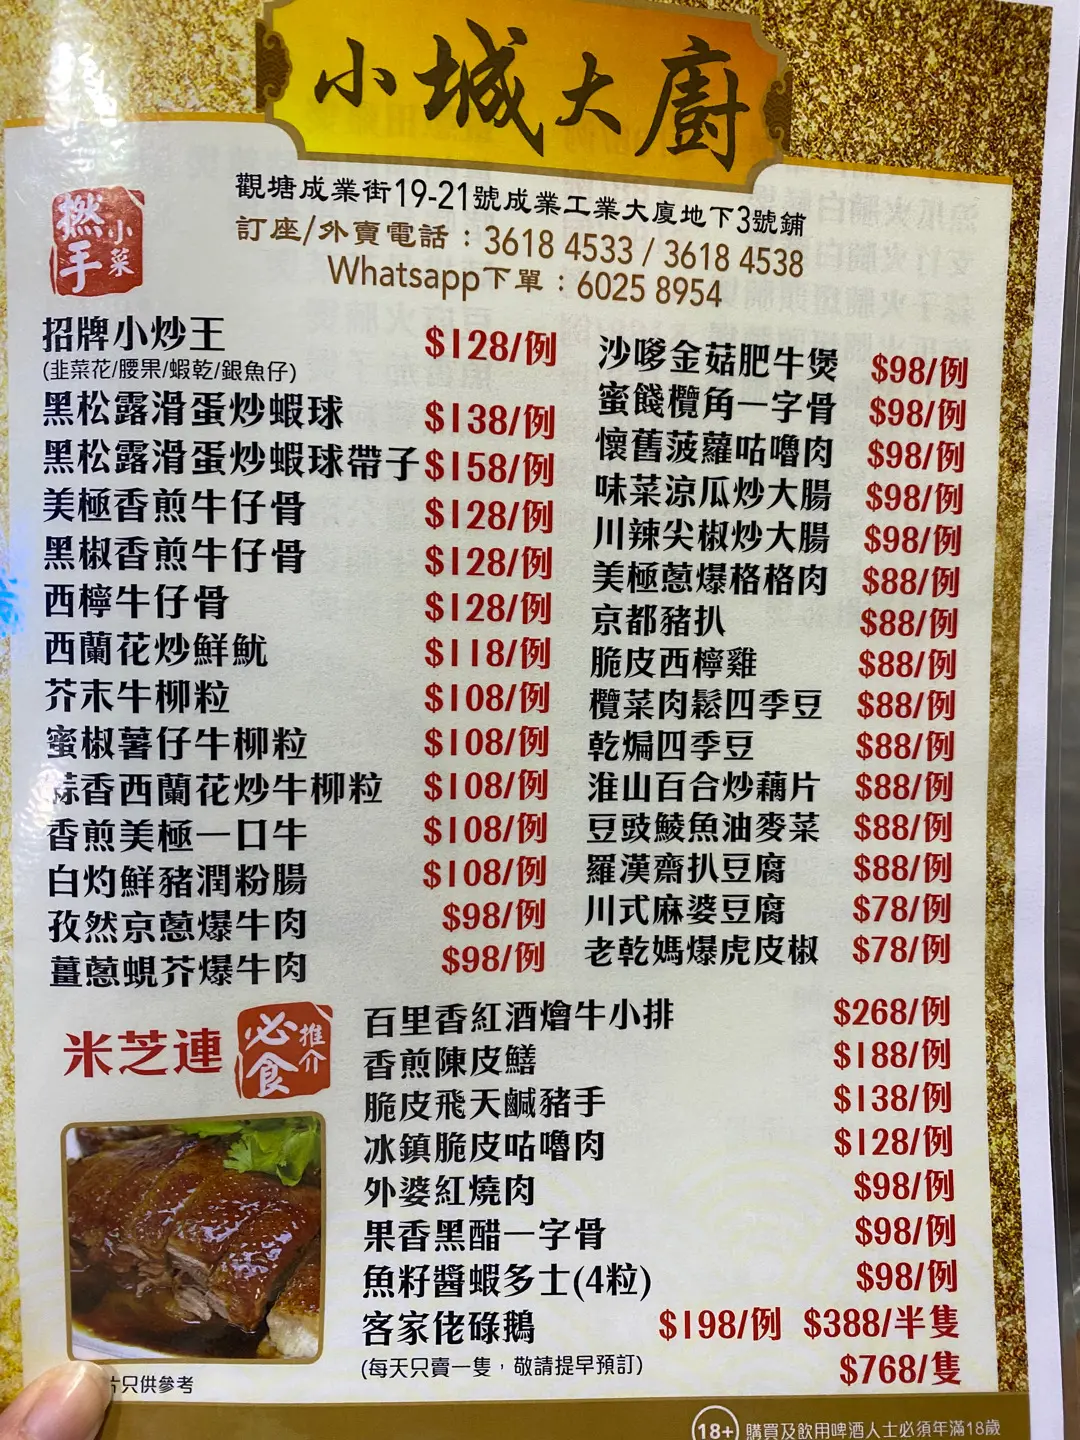 小城大廚
觀塘成業街19-21號成業工業大廈地下3號鋪
訂座/外賣電話：3618 4533 / 3618 4538
Whatsapp下單：6025 8954
撚手小菜
招牌小炒王 $128/例
(韭菜花/腰果/蝦乾/銀魚仔)
黑松露滑蛋炒蝦球 $138/例
黑松露滑蛋炒蝦球帶子 $158/例
美極香煎牛仔骨 $128/例
黑椒香煎牛仔骨 $128/例
西檸牛仔骨 $128/例
西蘭花炒鮮魷 $118/例
芥末牛柳粒 $108/例
蜜椒薯仔牛柳粒 $108/例
蒜香西蘭花炒牛柳粒 $108/例
香煎美極一口牛 $108/例
白灼鮮豬潤粉腸 $108/例
孜然京蔥爆牛肉 $98/例
薑蔥蜆芥爆牛肉 $98/例
沙嗲金菇肥牛煲 $98/例
蜜餞欖角一字骨 $98/例
懷舊菠蘿咕嚕肉 $98/例
味菜涼瓜炒大腸 $98/例
川辣尖椒炒大腸 $98/例
美極蔥爆格格肉 $88/例
京都豬扒 $88/例
脆皮西檸雞 $88/例
欖菜肉鬆四季豆 $88/例
乾煸四季豆 $88/例
淮山百合炒藕片 $88/例
豆豉鯪魚油麥菜 $88/例
羅漢齋扒豆腐 $88/例
川式麻婆豆腐 $78/例
老乾媽爆虎皮椒 $78/例
米芝連 必食推介
百里香紅酒燴牛小排 $268/例
香煎陳皮鱔 $188/例
脆皮飛天鹹豬手 $138/例
冰鎮脆皮咕嚕肉 $128/例
外婆紅燒肉 $98/例
果香黑醋一字骨 $98/例
魚籽醬蝦多士(4粒) $98/例
客家佬碌鵝 $198/例 $388/半隻
(每天只賣一隻，敬請提早預訂) $768/隻
片只供參考
18+ 購買及飲用啤酒人士必須年滿18歲